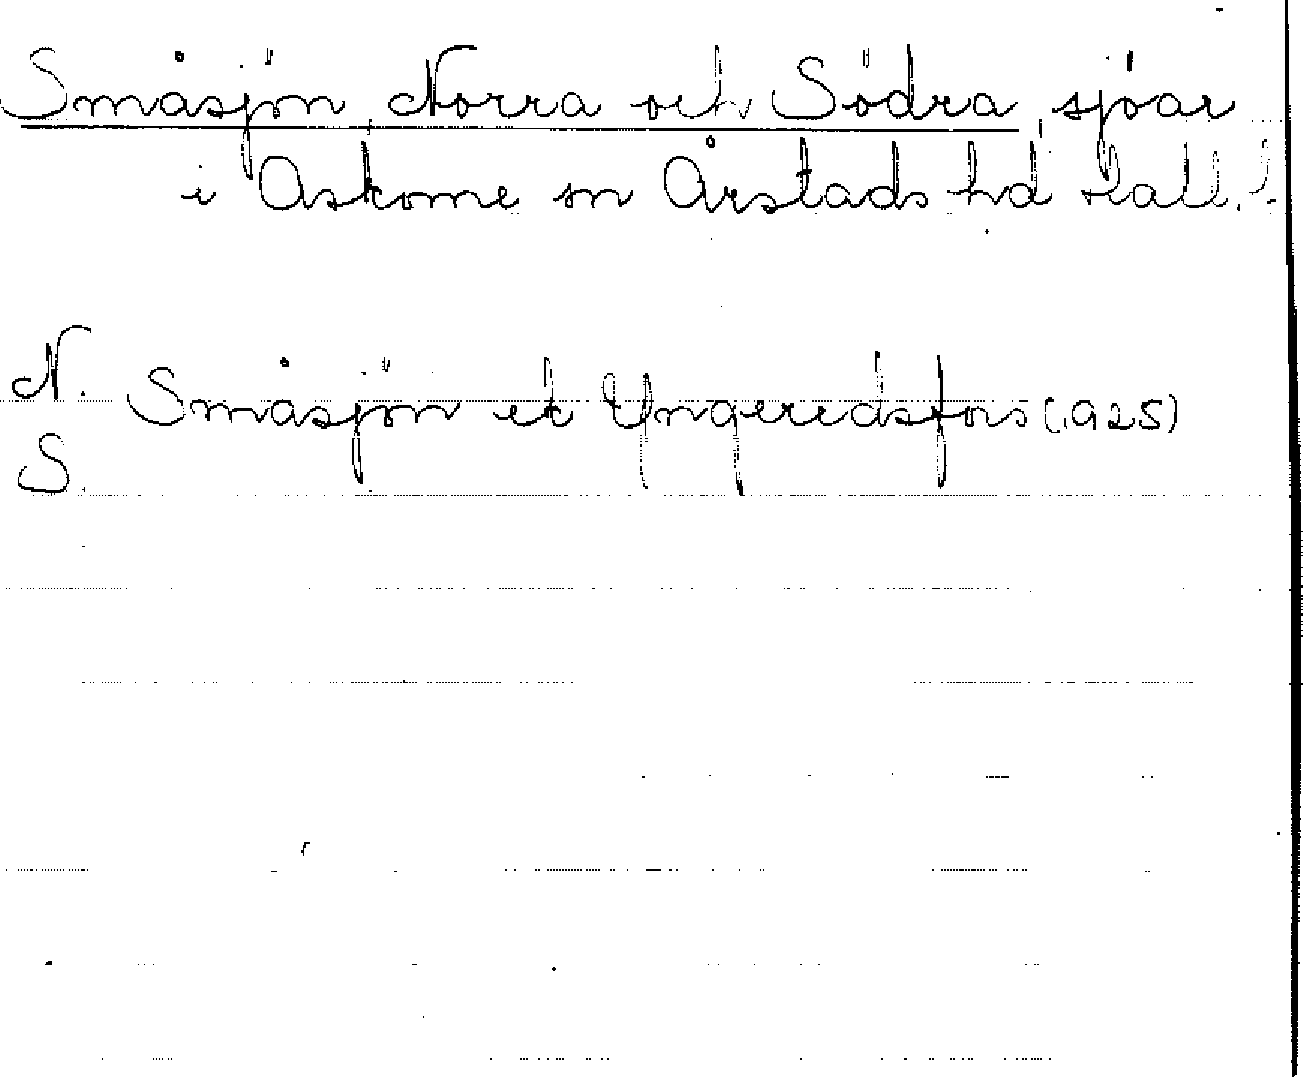 Småsjön Norra och Södra sjöar
i Askome sn Årstads hd Hall. l.
N. Småsjön ek Yngeredsfors (1925)
S.